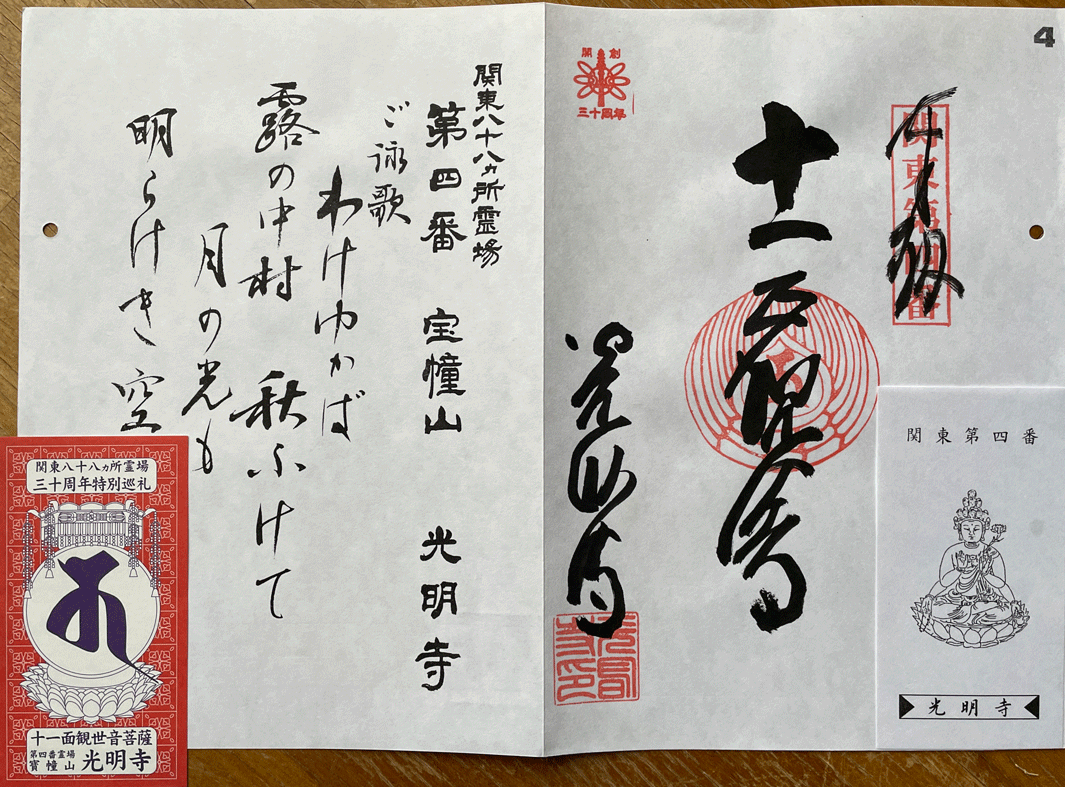 4
奉拝
関東第四番
開創
三十周年
十一面観世音
光明寺
関東八十八ヵ所霊場
第四番 宝幢山 光明寺
ご詠歌
わけゆかば
露の中村 秋ふけて
月の光も
明らけき空
関東第四番
光明寺
関東八十八ヵ所霊場
三十周年特別巡礼
十一面観世音菩薩
第四番霊場
寶幢山
光明寺